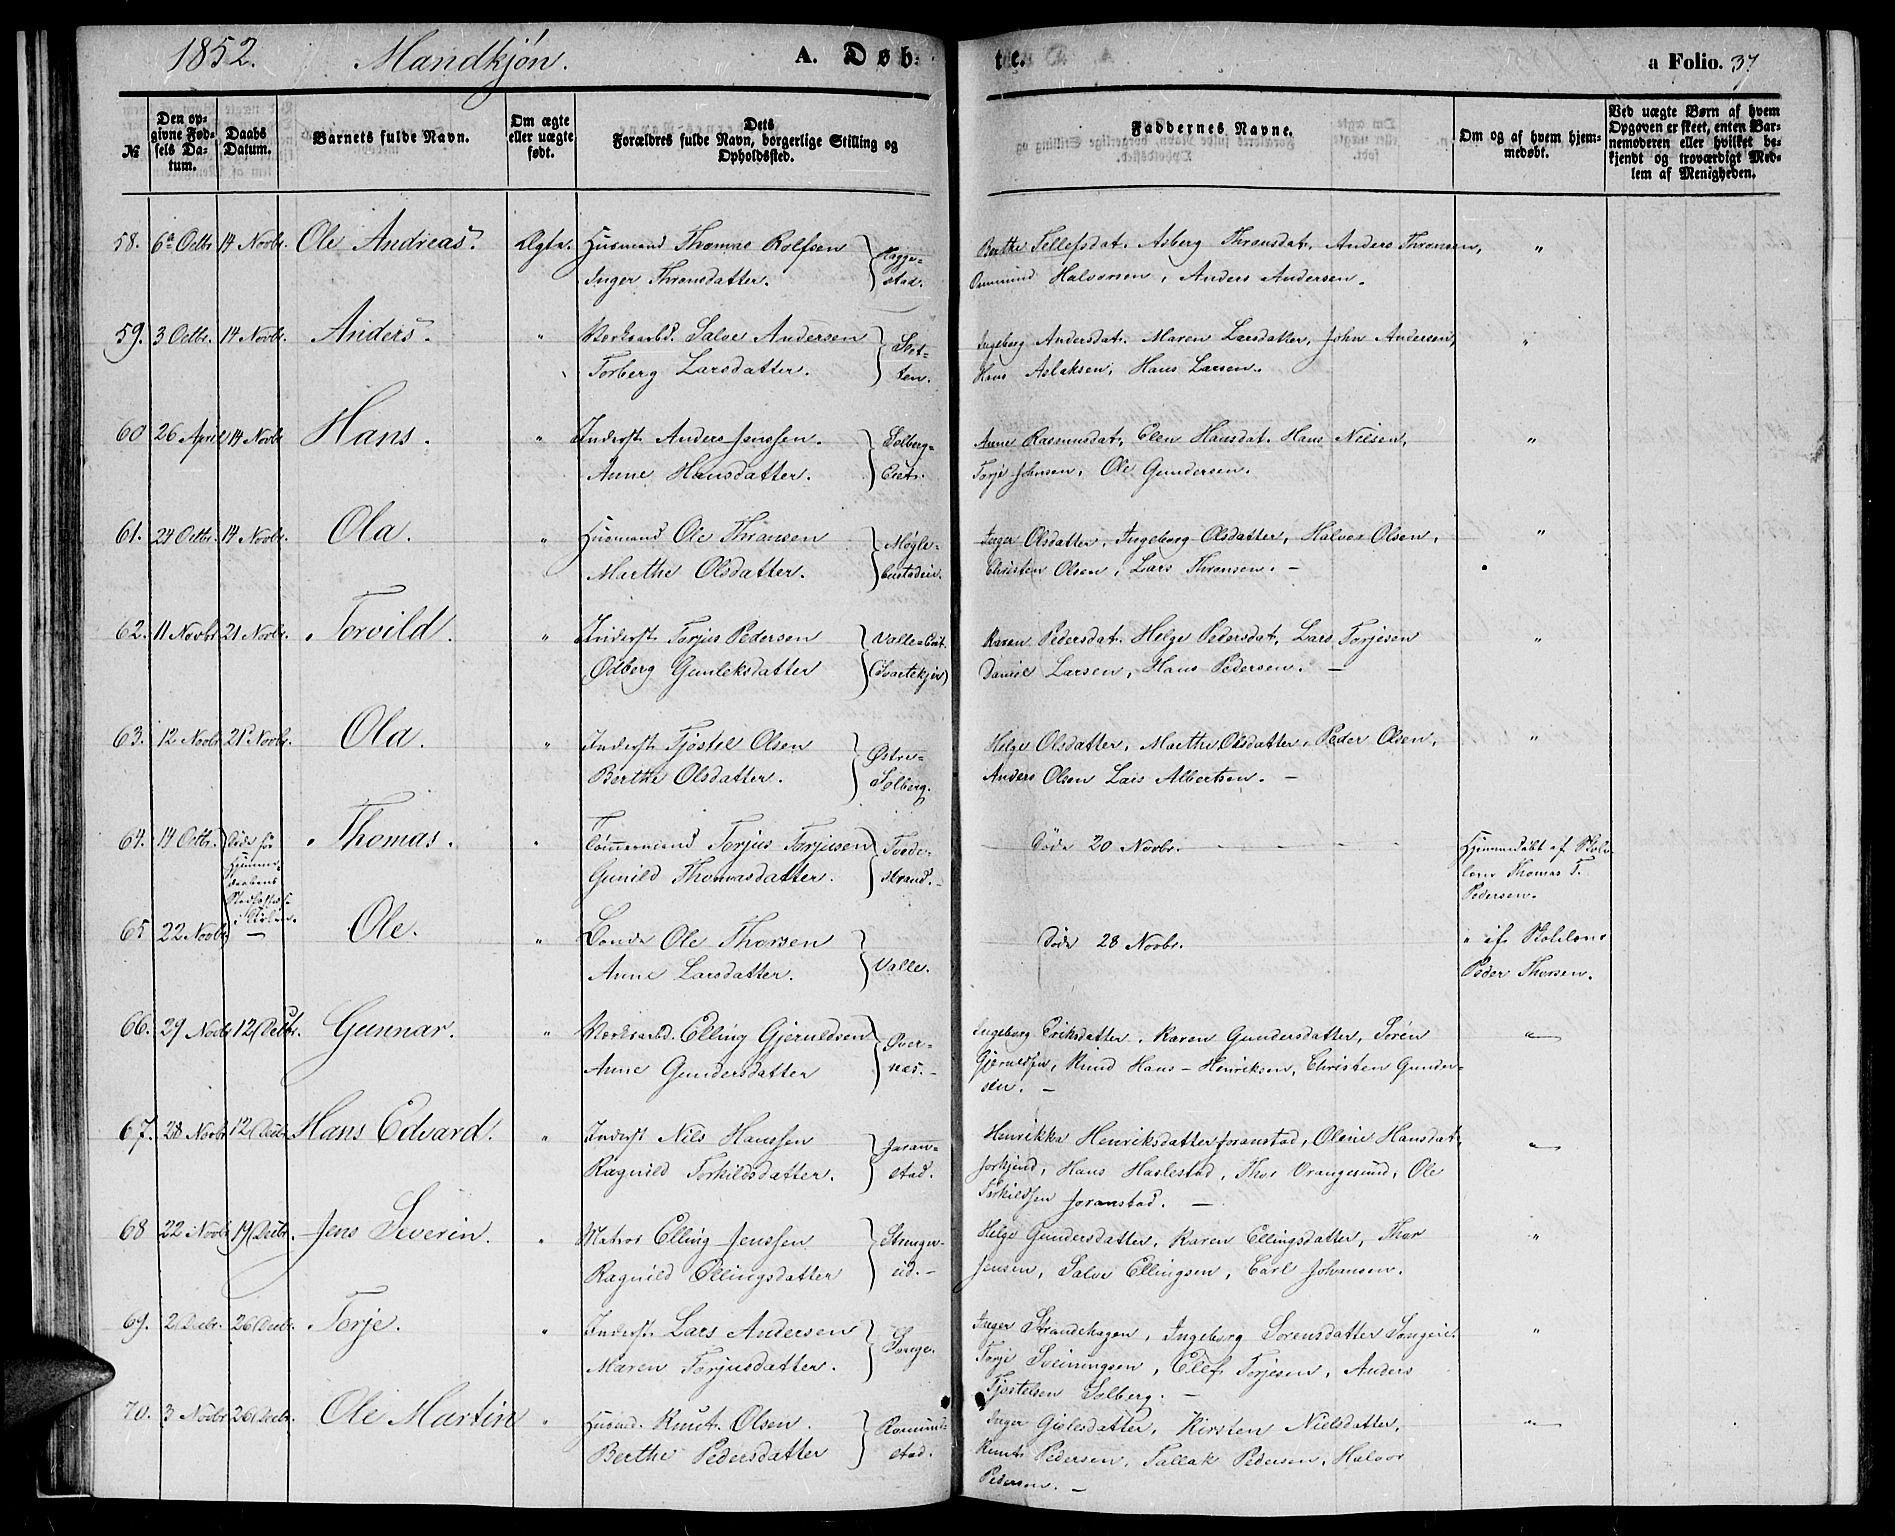 1852. Mandkjøn. A. Døb-
te. a Folio. 37
№
Den op-
givne Fød-
sels Da-
tum.
Daabs
Datum.
Barnets fulde Navn.
Om ægte
eller uægte
født.
Dets
Forældres fulde Navn, borgerlige Stilling og
Opholdssted.
Faddernes Navne.
Om og af hvem hjem-
medøbt.
Ved uægte Børn af hvem
Opgaven er skeet, enten Bar-
nemoderen eller hvilket be-
kjendt og troværdigt Med-
lem af Menigheden.
58. 6te Octbr. 14 Novbr. Ole Andreas. Ægte. Husmand Thomas Rolfsen
Inger Thronsdatter. Hagge-
stad.
Berthe Tellefsdat. Asberg Thronsdat, Anders Thronsen, "
Ommund Halvorsen, Anders Andersen.
59. 3 Octbr. 14 Novbr. Anders. " Værksarbd. Salve Andersen
Torberg Larsdatter. Slot-
ten.
Ingeborg Andersdat. Maren Larsdatter, John Andersen, "
Hans Aslaksen, Hans Larsen.
60 26 April 14 Novbr Hans. " Inderst. Anders Jenssen.
Anne Hansdatter. Solberg-
Eiet.
Anne Rasmusdat, Elen Hansdat. Hans Nielsen, "
Torje Johnsen, Ole Gundersen.
61. 24 Octbr. 14 Novbr. Ola. " Husmand Ole Thronsen
Marthe Olsdatter. Møgle-
bustadeie.
Inger Olsdatter, Ingeborg Olsdatter, Halvor Olsen, "
Christen Olsen, Lars Thronsen. —
62. 11 Novbr 21 Novbr. Torvild. " Inderst. Torjus Pedersen
Odberg Gunleksdatter Valle-Eiet.
(Svartekjer)
Karen Pedersdat. Helge Pedersdat, Lars Torjesen "
Daniel Larsen, Hans Pedersen. —
63. 12 Novbr 21 Novbr. Ola. " Inderst. Tjøstel Olsen
Berthe Olsdatter. Østre-
Solberg.
Helge Olsdatter, Marthe Olsdatter, Peder Olsen, "
Anders Olsen Lars Albertsen. —
64. 14 Octbr. Døde før
Hjemme-
daabens
Stadfæstelse
i Kirken. Thomas. " Tømmermand Torjus Torjusen
Gunild Thomasdatter. Tvede-
strand. —
Døde 20 Novbr. Hjemmedøbt af Skole
lærer Thomas T.
Pedersen.
65 22 Novbr — Ole. " Bonde Ole Thorsen
Anne Larsdatter. Valle.
Døde 28 Novbr. " af Skolelærer
Peder Thorsen.
66. 29 Novbr 12 Decbr. Gunnar. " Værksarbd. Elling Gjeruldsen
Anne Gundersdatter Over-
næs. —
Ingeborg Eriksdatter, Karen Gundersdatter, Sørén "
Gjeruldsen, Knud Hans-Henriksen, Christen Gunder-
sen. —
67. 28 Novbr 12 Decbr Hans Edvard. " Inderst Nils Hanssen
Ragnild Torkildsdatter. Joran-
stad.
Henrikka Henriksdatter Joranstad, Oline Hansdat. "
Hans Haslestad, Thor Vrangesund, Ole
Torkildsen Joranstad. —
68 22 Novbr 19 Decbr. Jens Severin. " Matros Elling Jenssen
Ragnild Ellingsdatter Strenge-
eid. —
Helge Gundersdatter, Karen Ellingsdatter, Thor "
Jensen, Salve Ellingsen, Carl Johansen.
69. 2 Decbr. 26 Decbr. Torje. " Inderst. Lars Andersen
Maren Torjusdatter. Songe.
Inger Strandehagen, Ingeborg Sorensdatter Songeie. "
Torje Sveiningsen, Elef Torjesen, Anders
Tjøstelsen Solberg. —
70. 3 Novbr 26 Decbr. Ole Martin " Husmd. Knut Olsen.
Berthe Pedersdatter Romund-
stad.
Inger Gjulesdatter, Kirsten Nielsdatter, "
Knut Pedersen, Tallak Pedersen, Halvor
Pedersen. —